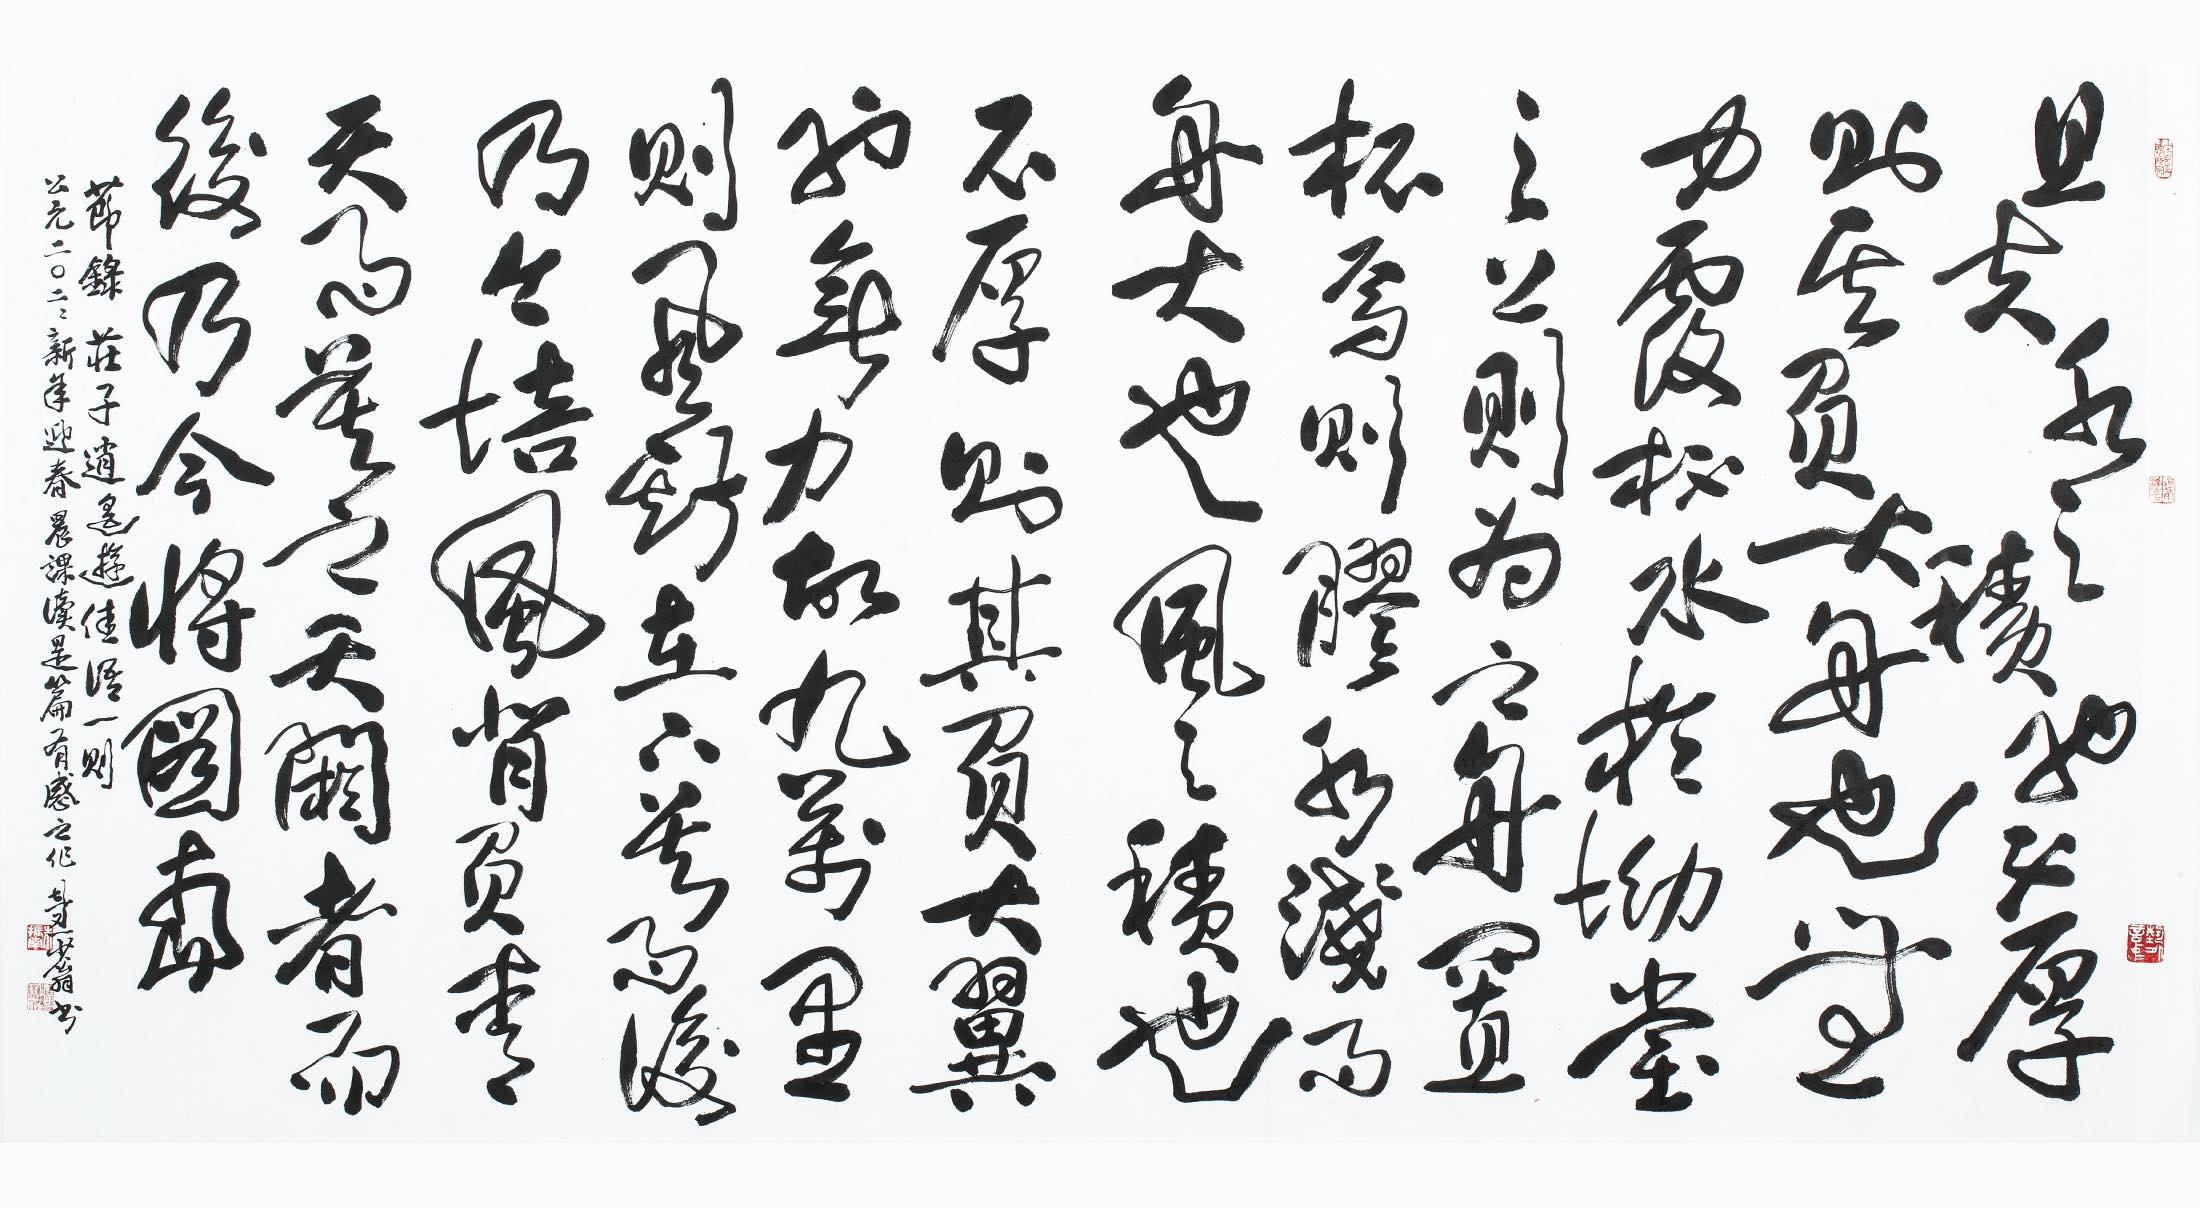 且夫水之積也不厚
則其負大舟也無
力覆杯水於坳堂
之上則為之舟置
杯焉則膠水淺而
舟大也風之積也
不厚則其負大翼
也無力故九萬里
則風斯在下矣而後
乃今培風背負青
天而莫之夭閼者而
後乃今將圖南
節錄莊子逍遙遊佳語一則
公元二〇二二新年迎春晨課讀是篇有感之作翁書